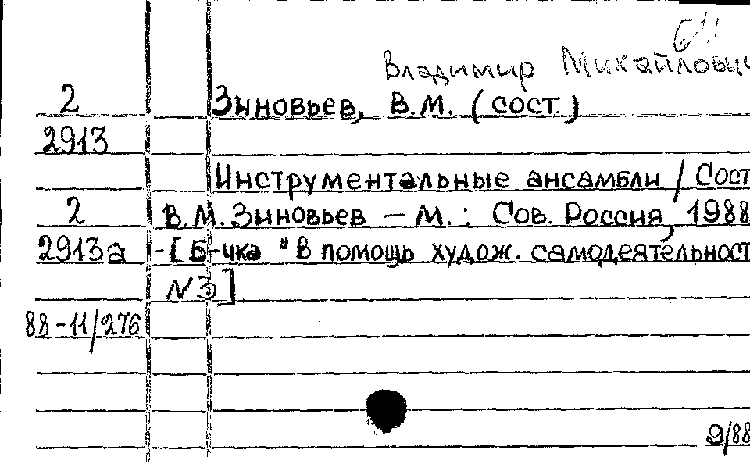 Владимир Михайлович
2 Зиновьев, В.М. (сост.)
2913
Инструментальные ансамбли / Сост.
2 В.М. Зиновьев — М.: Сов. Россия, 1988
2913а -[Б-чка "В помощь худож. самодеятельност
N 3]
88-11/276
9/88